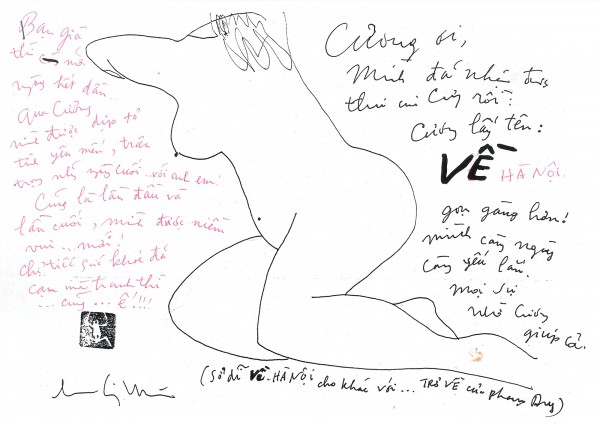 Bạn già
thì
ngóng hết dần...
Qua Cường
mình được dịp tỏ
tình yêu mến, trân
trọng cuối với anh em!
Cũng là lần đầu và
lần cuối, mình được niềm
vui... mới!
chỉ tiếc quá khứ đã
cạn mẹ tranh thì
... cũng ... ế!!!!
Cường ơi,
Mình đã nhận được
thư của Cường rồi:
Cường lấy tên:
VỀ HÀ NỘI.
gọn gàng hơn!
mình càng ngày
càng yếu lắm.
mọi sự
nhờ Cường
giúp cả.
(Sở dĩ Về HÀ NỘI cho khác với... TRỞ VỀ của Phạm Duy)